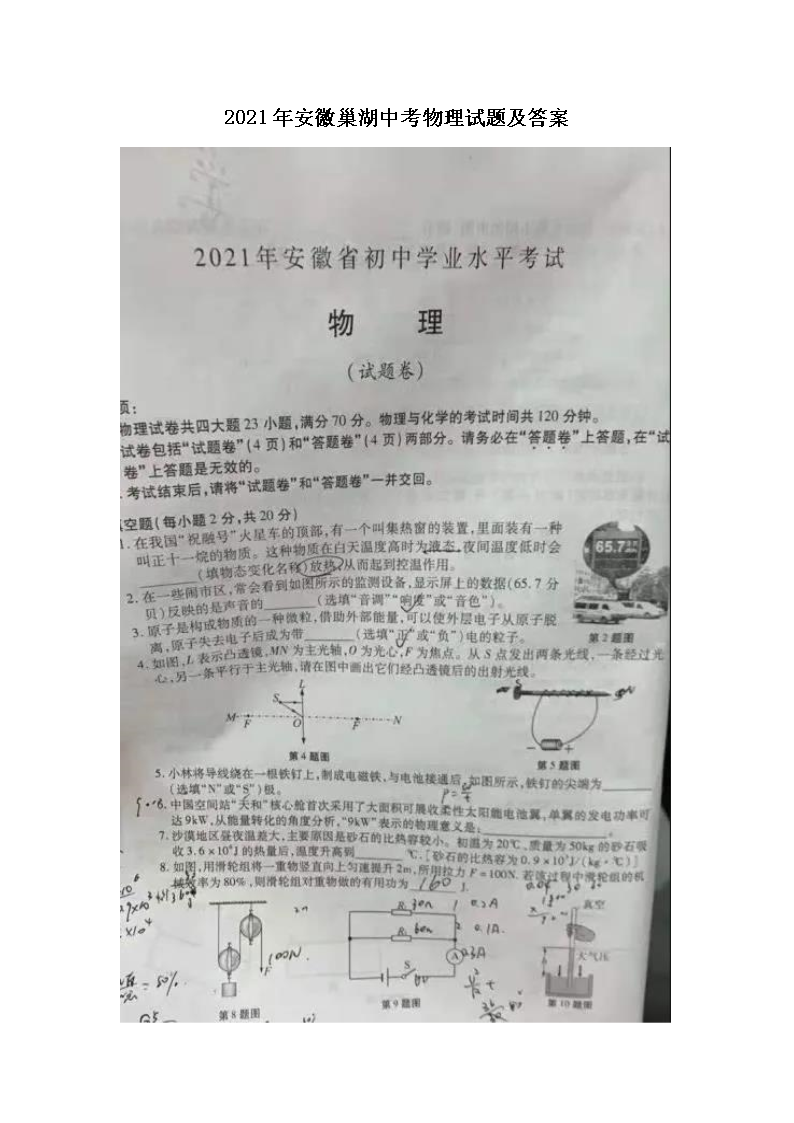 2021年安徽巢湖中考物理试题及答案
2021年安徽省初中学业水平考试
物 理
(试题卷)
项:
物理试卷共四大题23小题,满分70分。物理与化学的考试时间共120分钟。
试卷包括“试题卷”(4页)和“答题卷”(4页)两部分。请务必在“答题卷”上答题,在“试
卷”上答题是无效的。
.考试结束后,请将“试题卷”和“答题卷”一并交回。
空题(每小题2分,共20分)
1.在我国“祝融号”火星车的顶部,有一个叫集热窗的装置,里面装有一种
叫正十一烷的物质。这种物质在白天温度高时为液态,夜间温度低时会
(填物态变化名称)放热,从而起到控温作用。
65.7
2.在一些闹市区,常会看到如图所示的监测设备,显示屏上的数据(65.7分
贝)反映的是声音的 (选填“音调”“响度”或“音色”)。
3.原子是构成物质的一种微粒,借助外部能量,可以使外层电子从原子脱
离,原子失去电子后成为带 (选填“正”或“负”)电的粒子。
第2题图
4.如图,L表示凸透镜,MN为主光轴,O为光心,F为焦点。从S点发出两条光线,一条经过光
心,另一条平行于主光轴,请在图中画出它们经凸透镜后的出射光线。
L
S
S N
M F O F N
- +
第4题图
第5题图
5.小林将导线绕在一根铁钉上,制成电磁铁,与电池接通后,如图所示,铁钉的尖端为
(选填“N”或“S”)极。
6.中国空间站“天和”核心舱首次采用了大面积可展收柔性太阳能电池翼,单翼的发电功率可
达9kW,从能量转化的角度分析,“9kW”表示的物理意义是: 。
7.沙漠地区昼夜温差大,主要原因是砂石的比热容较小。初温为20℃、质量为50kg的砂石吸
收3.6×10⁵J的热量后,温度升高到 ℃。[砂石的比热容为0.9×10³J/(kg·℃)]
8.如图,用滑轮组将一重物竖直向上匀速提升2m,所用拉力F=100N。若该过程中滑轮组的机
械效率为80%,则滑轮组对重物做的有用功为 160 J.
R₁ 30Ω 1 0.2A
真空
R₂ 60Ω 2 0.1A.
100N
F
A 0.3A
大气压
S
= 80%
第8题图
第9题图
第10题图